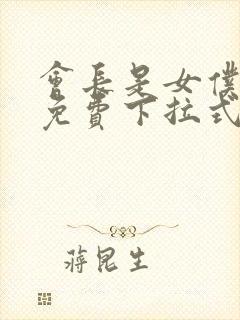 會長是女僕
免費下拉式
蔣昆生